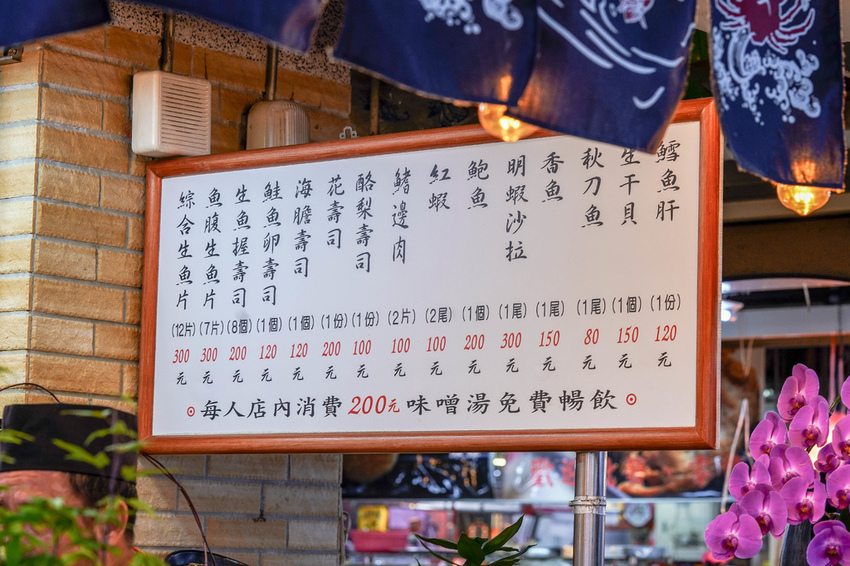 鱈魚肝 (1份) 120元
生干貝 (1個) 150元
秋刀魚 (1尾) 80元
香魚 (1尾) 150元
明蝦沙拉 (1尾) 300元
鮑魚 (1個) 200元
紅蝦 (2尾) 100元
鰭邊肉 (2片) 100元
酪梨壽司 (1份) 100元
花壽司 (1份) 200元
海膽壽司 (1個) 120元
鮭魚卵壽司 (1個) 120元
生魚握壽司 (8個) 200元
魚腹生魚片 (7片) 300元
綜合生魚片 (12片) 300元
每人店內消費200元味噌湯免費暢飲